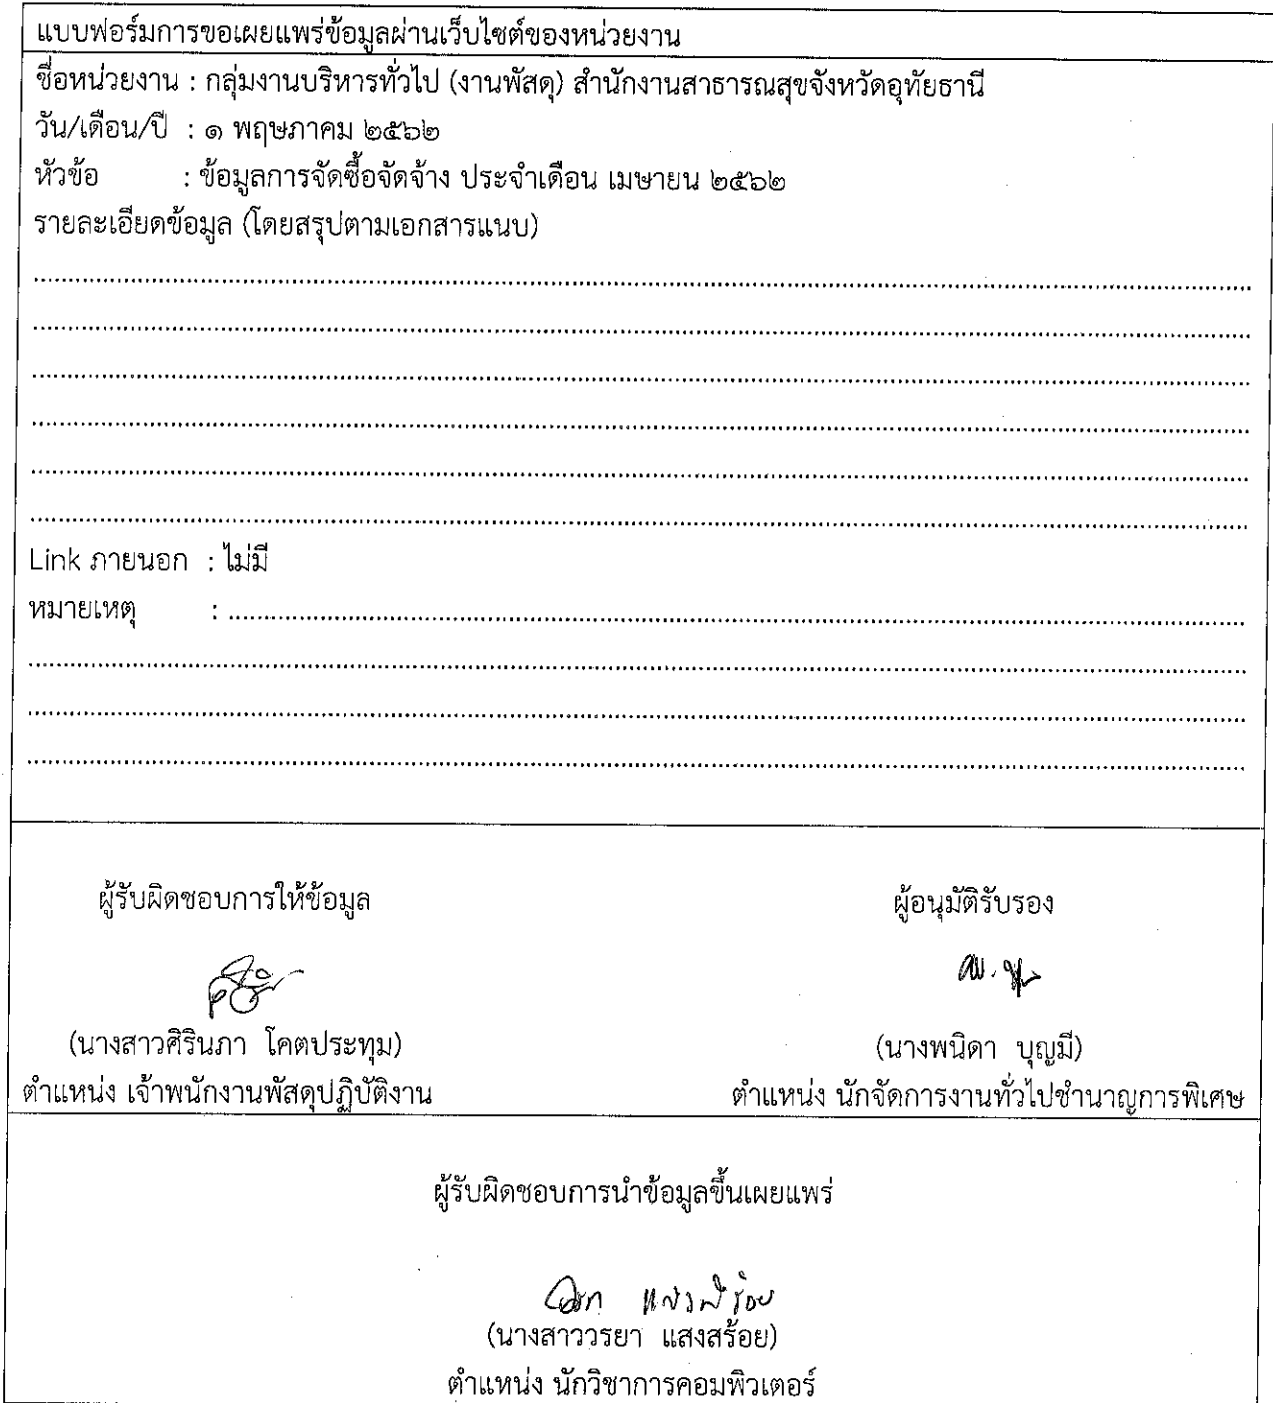 แบบฟอร์มการขอเผยแพร่ข้อมูลผ่านเว็บไซต์ของหน่วยงาน
ชื่อหน่วยงาน : กลุ่มงานบริหารทั่วไป (งานพัสดุ) สำนักงานสาธารณสุขจังหวัดอุทัยธานี
วัน/เดือน/ปี : ๑ พฤษภาคม ๒๕๖๒
หัวข้อ : ข้อมูลการจัดซื้อจัดจ้าง ประจำเดือน เมษายน ๒๕๖๒
รายละเอียดข้อมูล (โดยสรุปตามเอกสารแนบ)
Link ภายนอก : ไม่มี
หมายเหตุ :
ผู้รับผิดชอบการให้ข้อมูล ผู้อนุมัติรับรอง
(นางสาวศิรินภา โคตประทุม) (นางพนิดา บุญมี)
ตำแหน่ง เจ้าพนักงานพัสดุปฏิบัติงาน ตำแหน่ง นักจัดการงานทั่วไปชำนาญการพิเศษ
ผู้รับผิดชอบการนำข้อมูลขึ้นเผยแพร่
(นางสาววรยา แสงสร้อย)
ตำแหน่ง นักวิชาการคอมพิวเตอร์